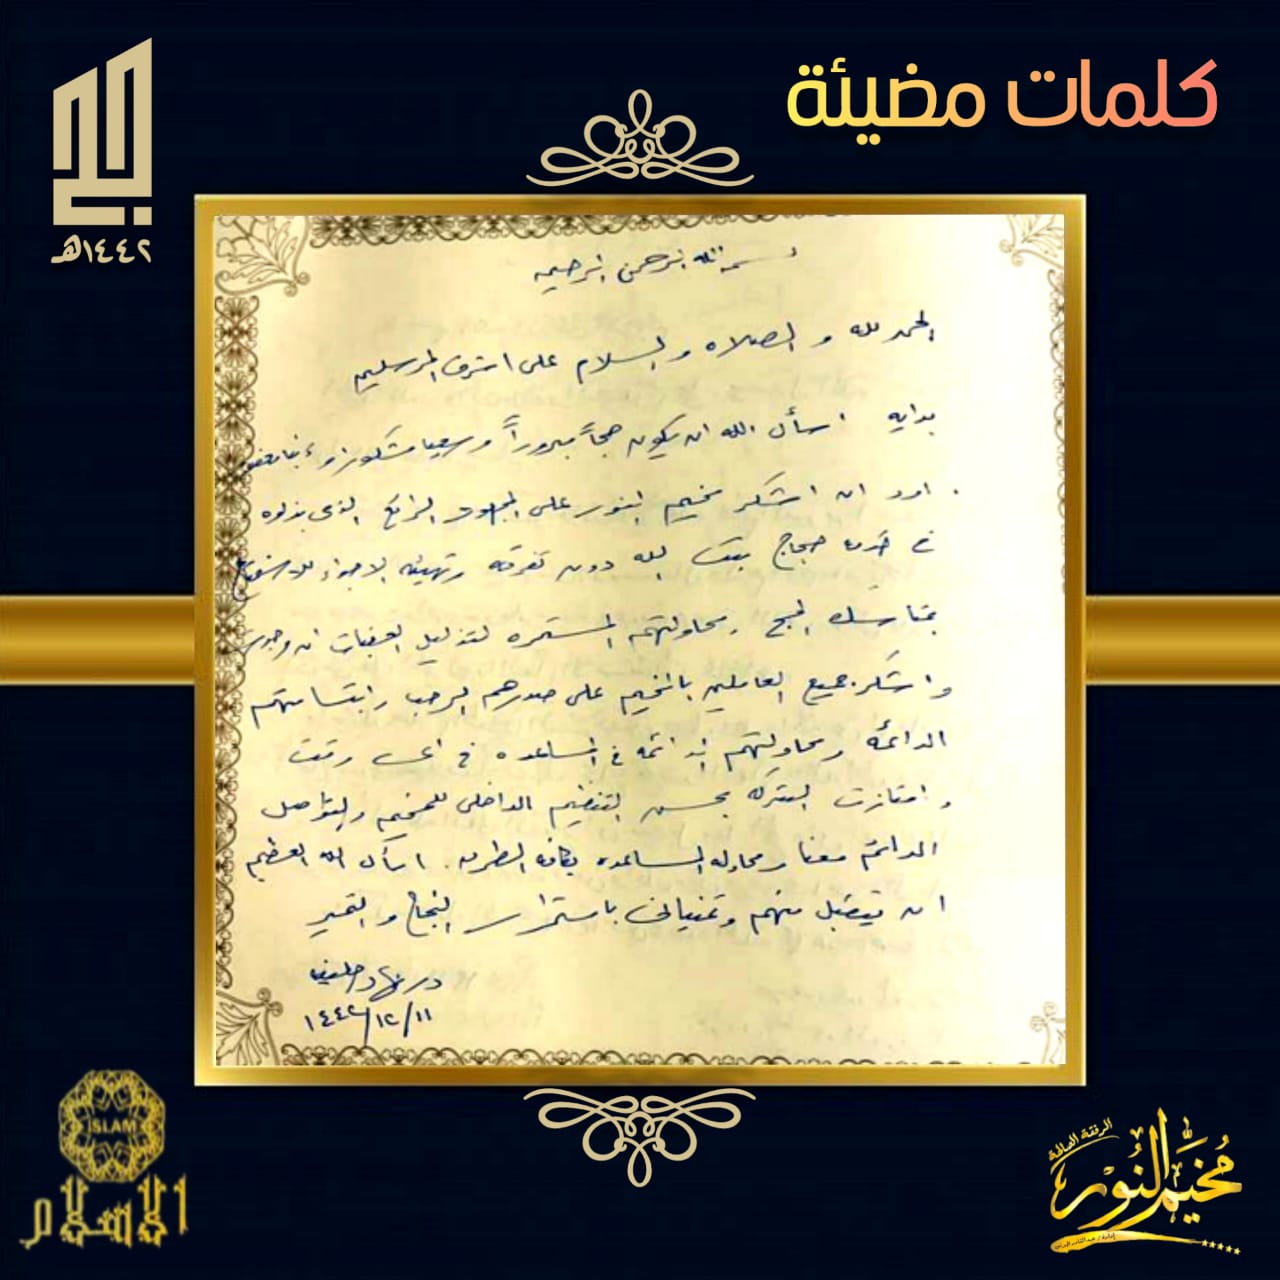 كلمات مضيئة
الحج
١٤٤٢هـ
بسم الله الرحمن الرحيم
الحمد لله و الصلاه و السلام على اشرف المرسلين
بدايه اسأل الله ان يكون حجاً مبروراً و سعيا مشكورا و
اود ان اشكر مخيم النور على المجهود الرائع الذى بذلوه
فى خدمة حجاج بيت الله دون تفرقه و تهيئه الاجواء
بمناسك الحج و محاولتهم المستمره لتذليل العقبات ان وجدت
و اشكر جميع العاملين بالمخيم على صدرهم الرحب و ابتسامتهم
الدائمة و محاولتهم الدائمه فى المساعده فى اى وقت
و امتازت الشركه بحسن التنظيم الداخلى للمخيم والتواصل
الدائم معنا و محاوله المساعده بكافه الطرق. اسأل الله العظيم
ان يتقبل منهم و تمنياتى باستمرار النجاح و التميز
١١/١٢/١٤٤٢
ISLAM
الاسلام
الرفقة الصالحة
مخيم النور